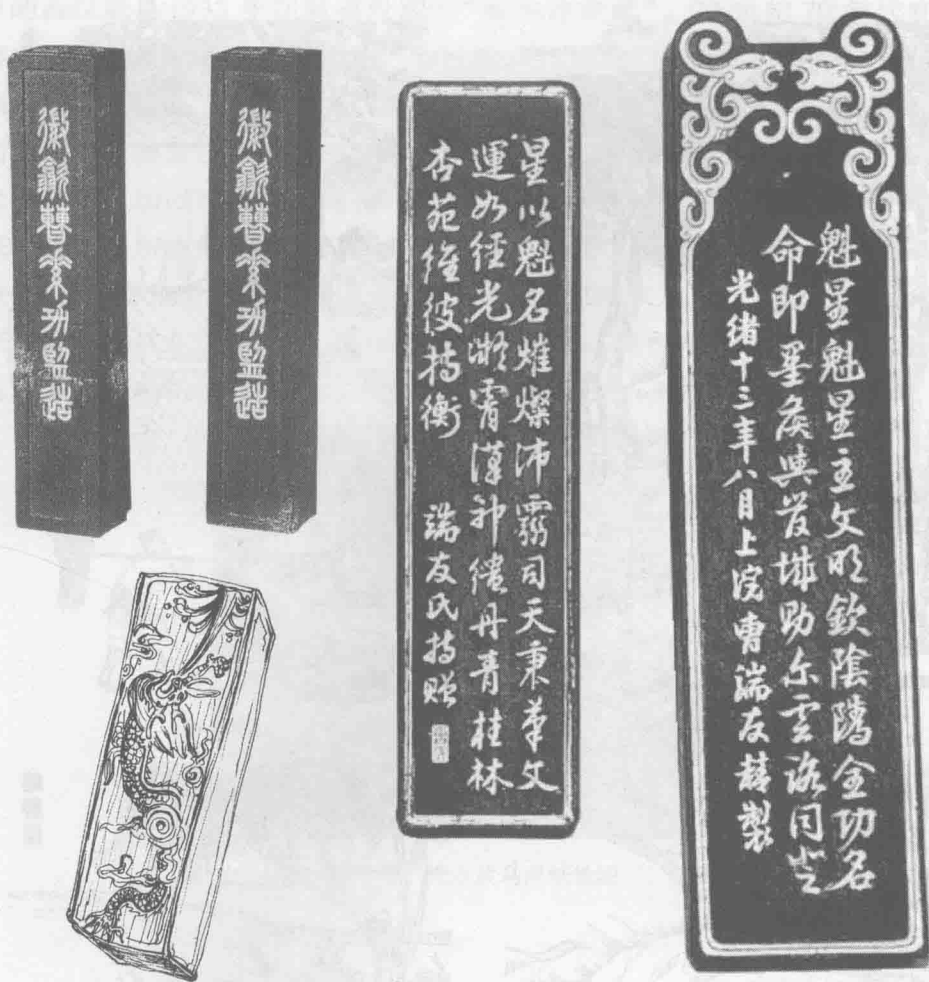 徽歙曹素功監造
徽歙曹素功監造
星以魁名熣燦沛霱司天秉筆文
運如經光凝霄漢神儘丹青桂林
杏苑維彼持衡 端友氏持贈
魁星魁星主文明欽陰隲全功名
命即墨矦與管城助尔雲路同登
光緒十三年八月上浣曹端友謹製